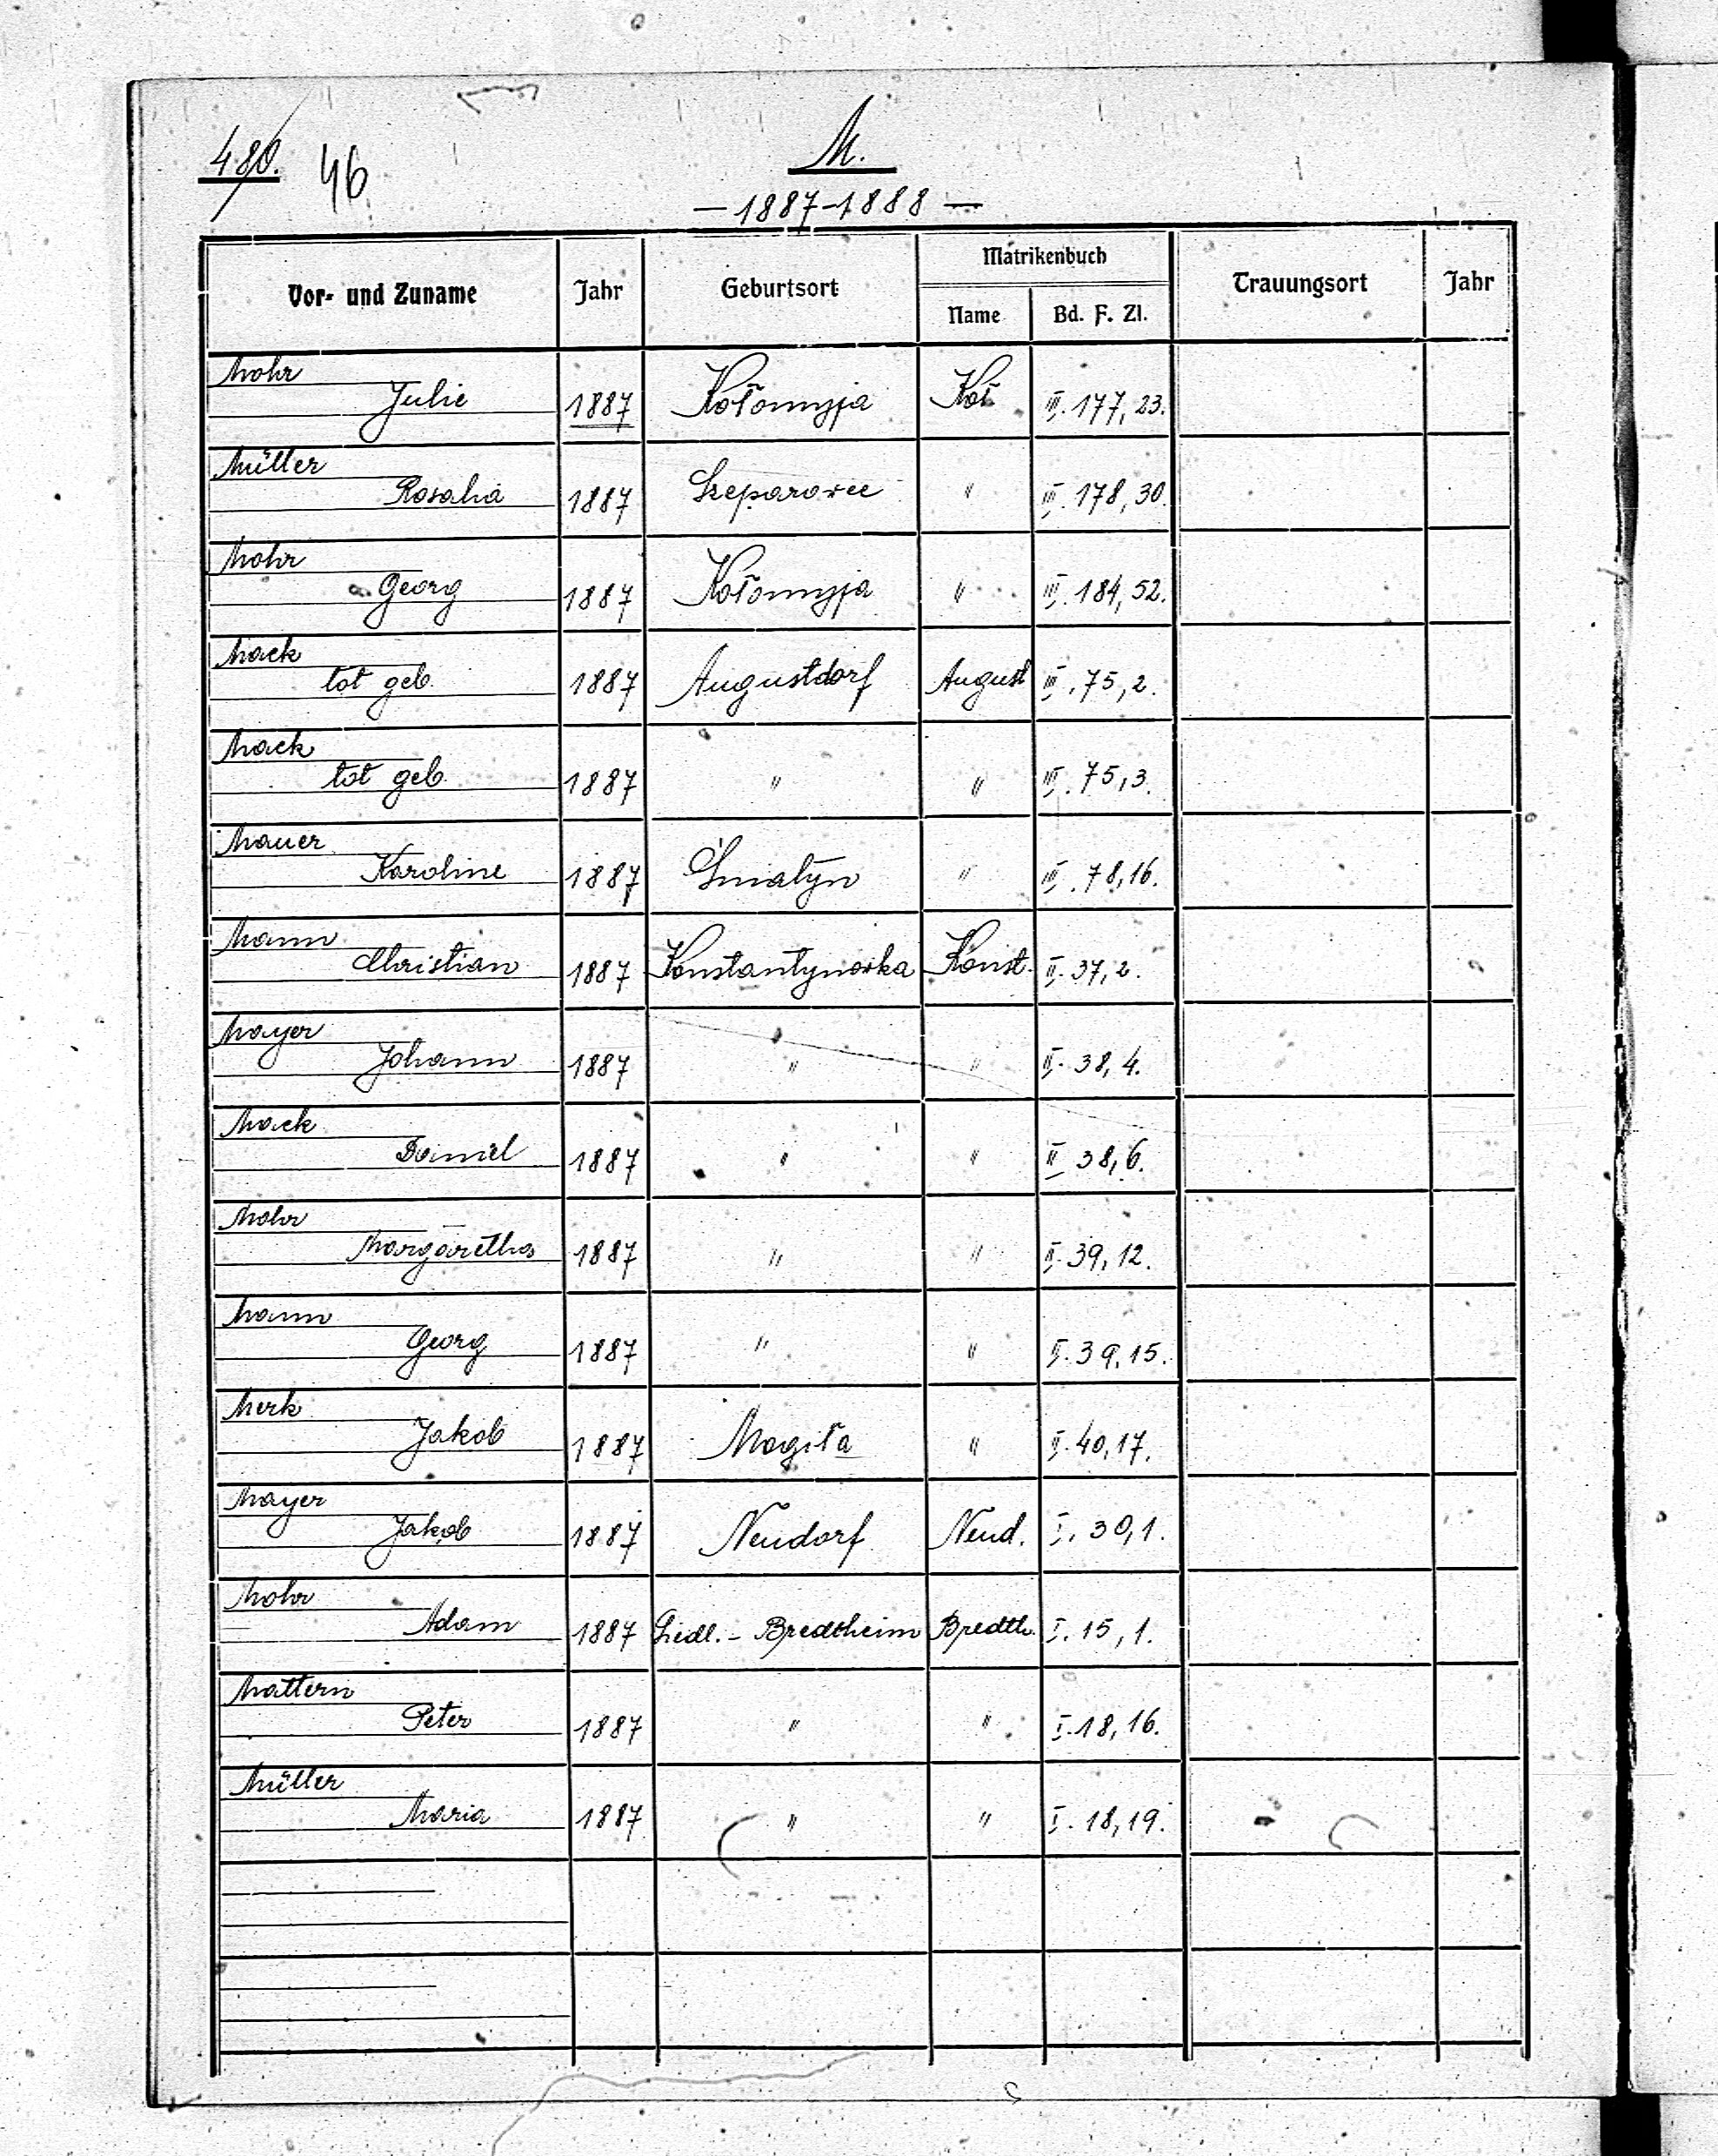 480. 46
M.
— 1887-1888 —
Vor- und Zuname Jahr Geburtsort Matrikenbuch Trauungsort Jahr
Name Bd. F. Zl.
Mohr
Julie 1887 Kołomyja Koł. III. 177, 23.
Müller
Rosalia 1887 Szeparowce " III. 178, 30.
Mohr
Georg 1887 Kołomyja " III. 184, 52.
Mack
tot geb. 1887 Augustdorf August III. 75, 2.
Mack
tot geb. 1887 " " III. 75, 3.
Mauer
Karoline 1887 Śniatyn " III. 78, 16.
Mann
Christian 1887 Konstantynowka Konst. II. 37, 2.
Mayer
Johann 1887 " " II. 38, 4.
Mack
Daniel 1887 " " II 38, 6.
Mohr
Margaretha 1887 " " II. 39, 12.
Mann
Georg 1887 " " II. 39, 15.
Merk
Jakob 1887 Mogiła " II. 40, 17.
Mayer
Jakob 1887 Neudorf Neud. I. 30, 1.
Mohr
Adam 1887 Siedl. - Bredtheim Bredth. I. 15, 1.
Mattern
Peter 1887 " " I. 18, 16.
Müller
Maria 1887 " " I. 18, 19.